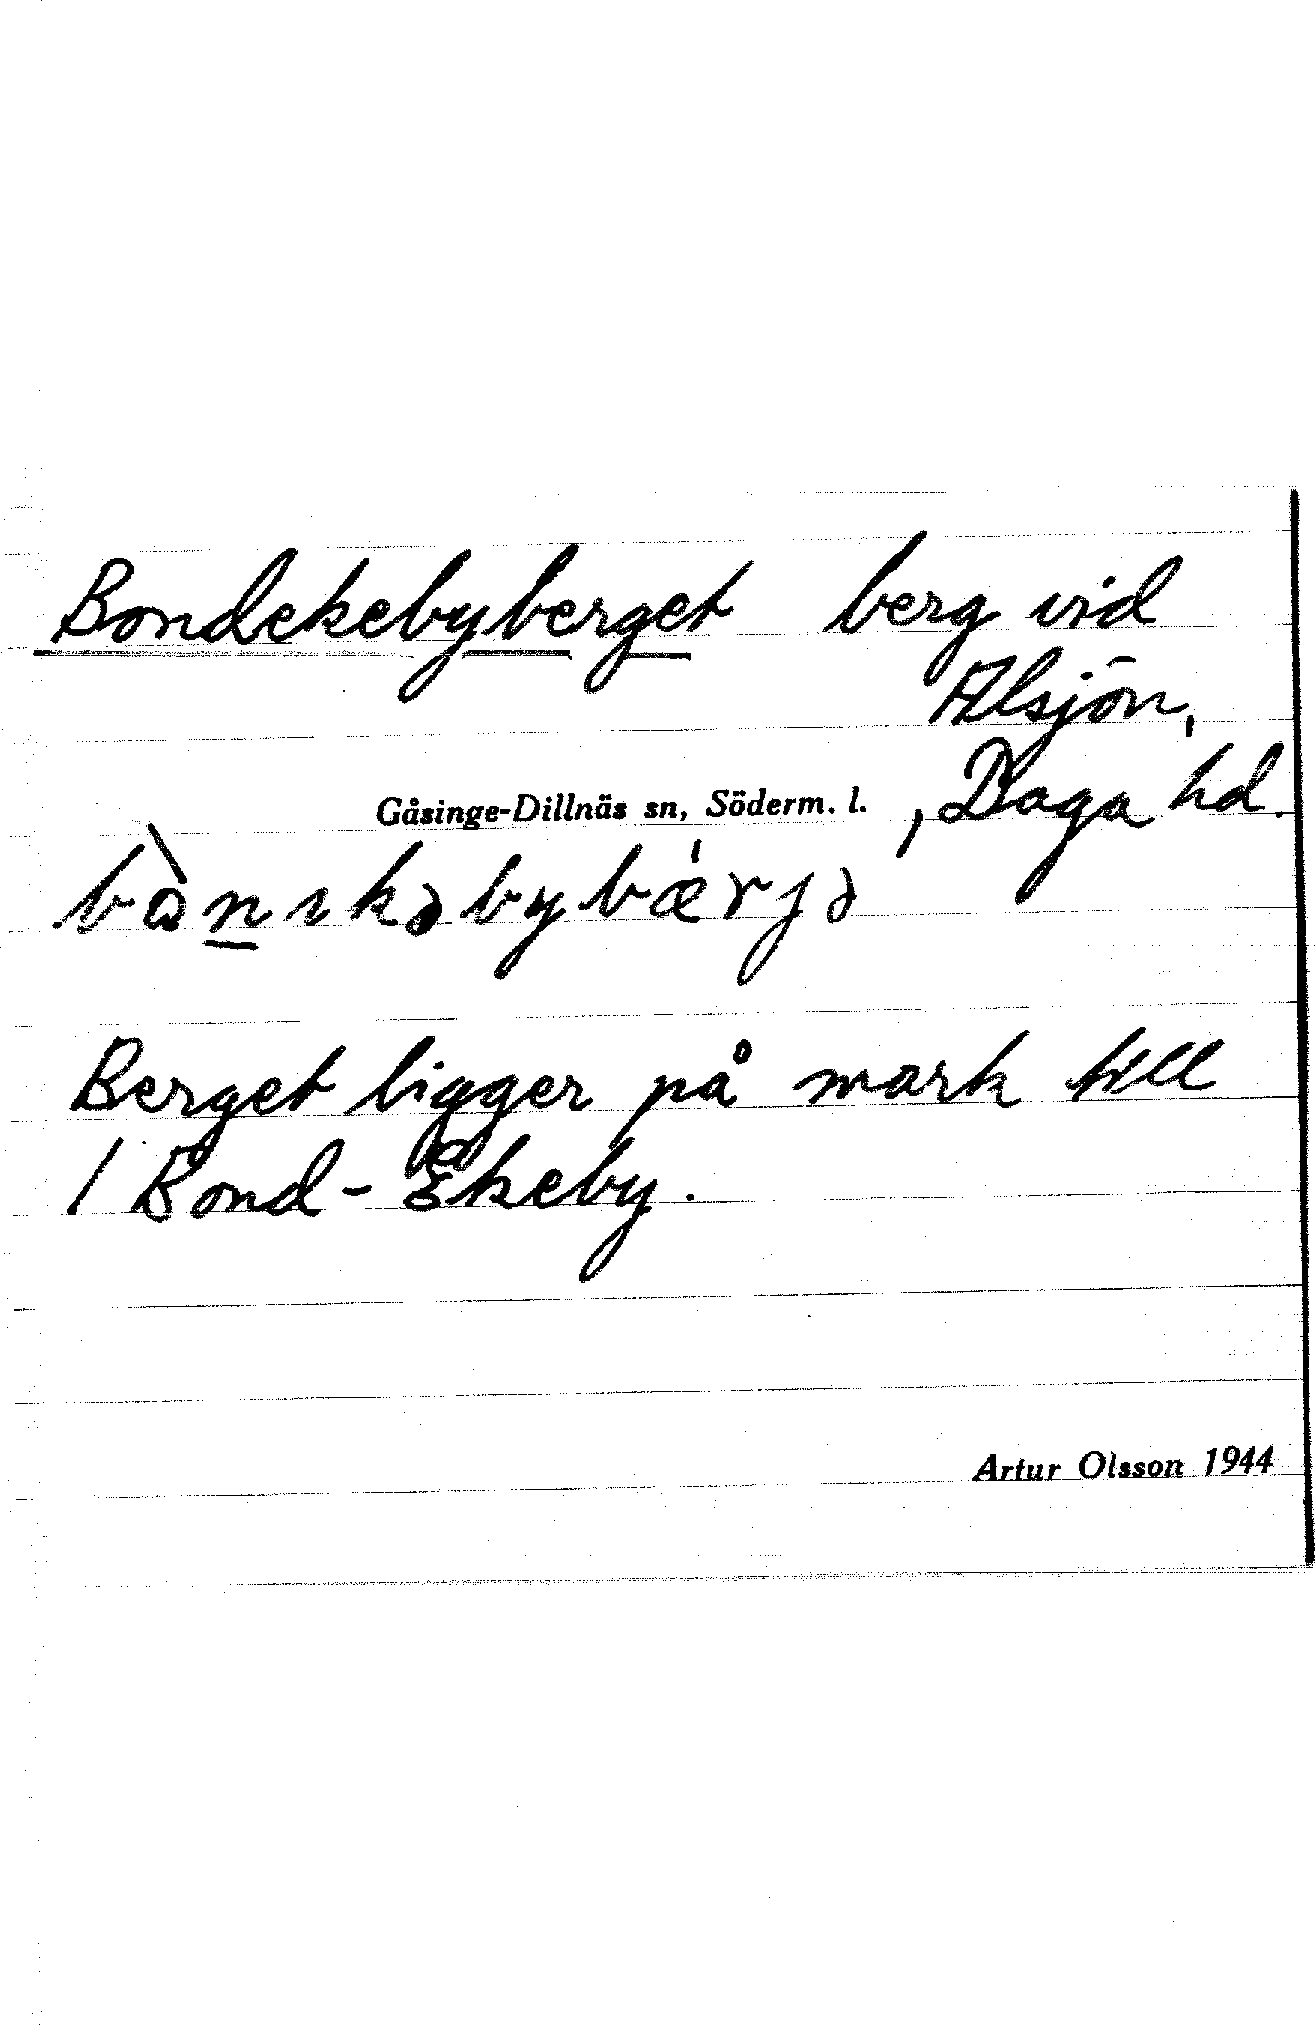 Bondekebyberget berg vid
Alsjön,
Gåsinge-Dillnäs sn, Söderm. l. , Daga hd.
Berget ligger på mark till
/ Bond-Ekeby.
Artur Olsson 1944